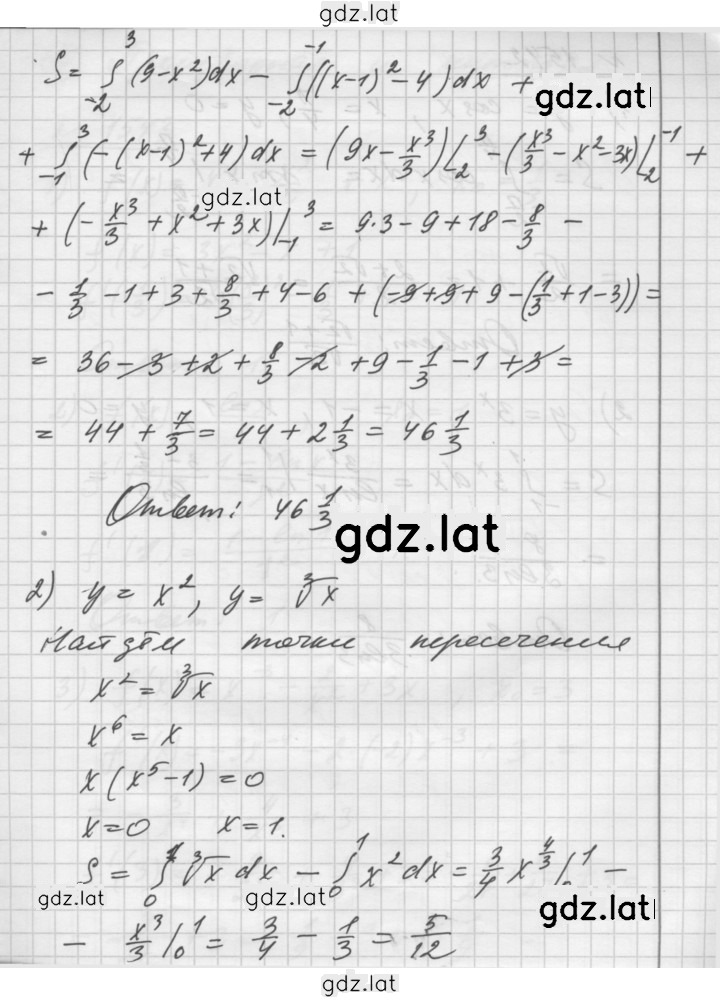 gdz.lat
S = ∫₋₂³ (9-x²)dx - ∫₋₂⁻¹ ((x-1)²-4)dx +
gdz.lat
+ ∫₋₁³ (-(x-1)²+4)dx = (9x - x³/3)|₋₂³ - (x³/3 - x² - 3x)|₋₂⁻¹ +
gdz.lat
+ (-x³/3 + x² + 3x)|₋₁³ = 9·3 - 9 + 18 - 8/3 -
- 1/3 - 1 + 3 + 8/3 + 4 - 6 + (-9 + 9 + 9 - (1/3 + 1 - 3)) =
= 36 - 3 + 2 + 8/3 - 2 + 9 - 1/3 - 1 + 3 =
= 44 + 7/3 = 44 + 2 1/3 = 46 1/3
Ответ: 46 1/3
gdz.lat
2) y = x², y = ∛x
Найдём точки пересечения
x² = ∛x
x⁶ = x
x(x⁵-1) = 0
x=0 x=1.
S = ∫₀¹ ∛x dx - ∫₀¹ x² dx = 3/4 x^(4/3)|₀¹ -
gdz.lat gdz.lat gdz.lat
- x³/3|₀¹ = 3/4 - 1/3 = 5/12
gdz.lat